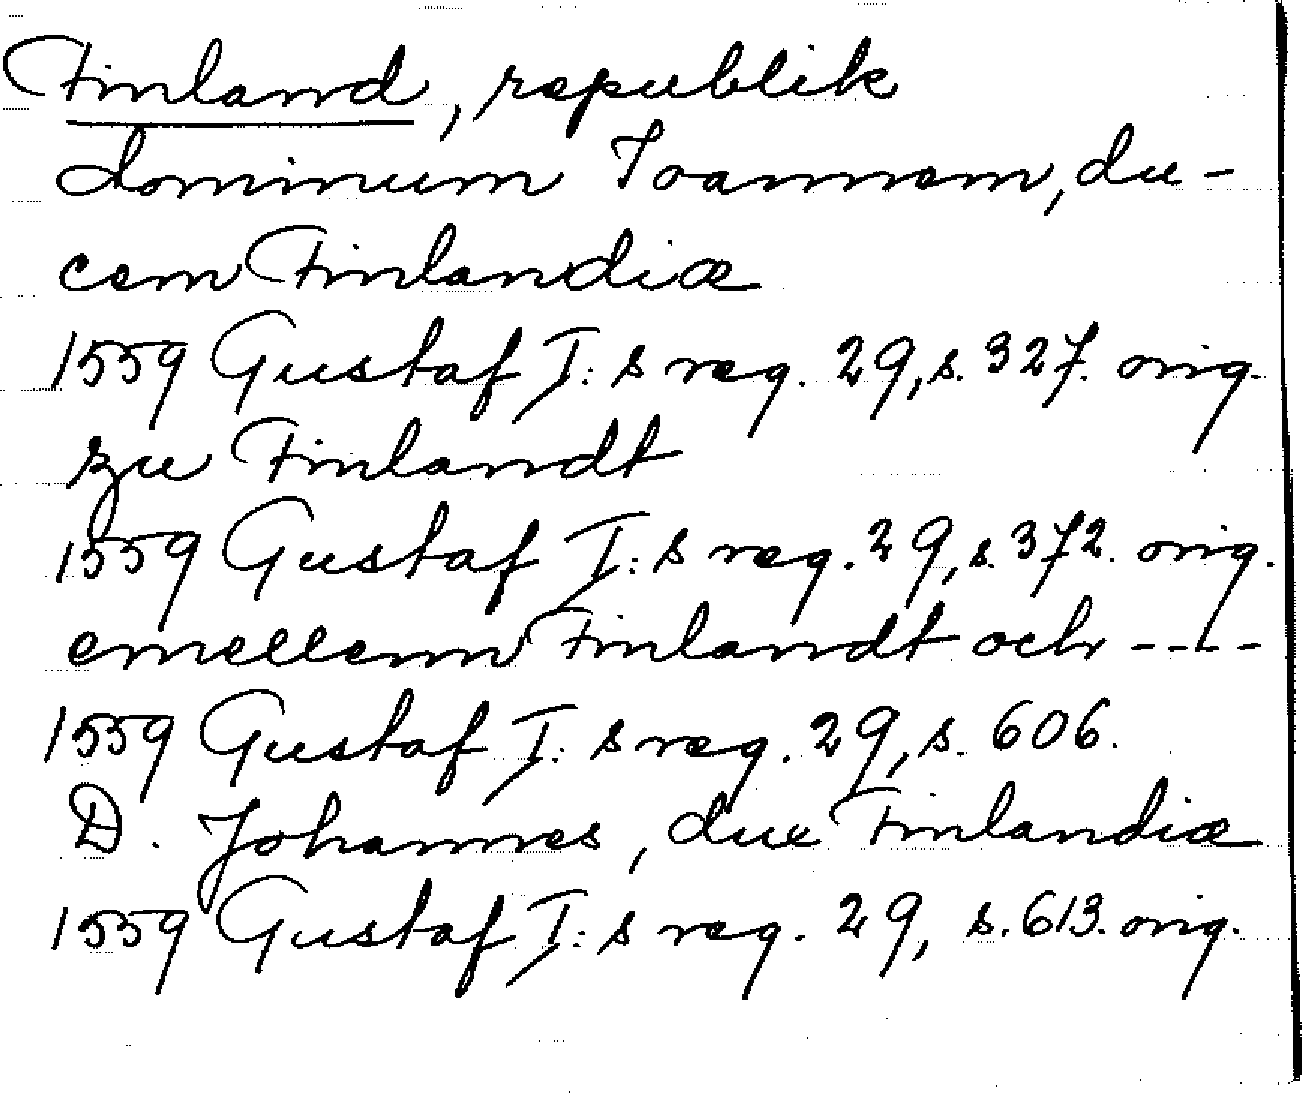 Finland, republik
dominum Ioannem, du-
cem Finlandiæ
1559 Gustaf I:s reg. 29, s. 327. orig.
zu Finlandt
1559 Gustaf I:s reg. 29, s. 372. orig.
emellenn Finlandt och ----
1559 Gustaf I:s reg. 29, s. 606.
D. Johannes, dux Finlandiæ
1559 Gustaf I:s reg. 29, s. 613. orig.